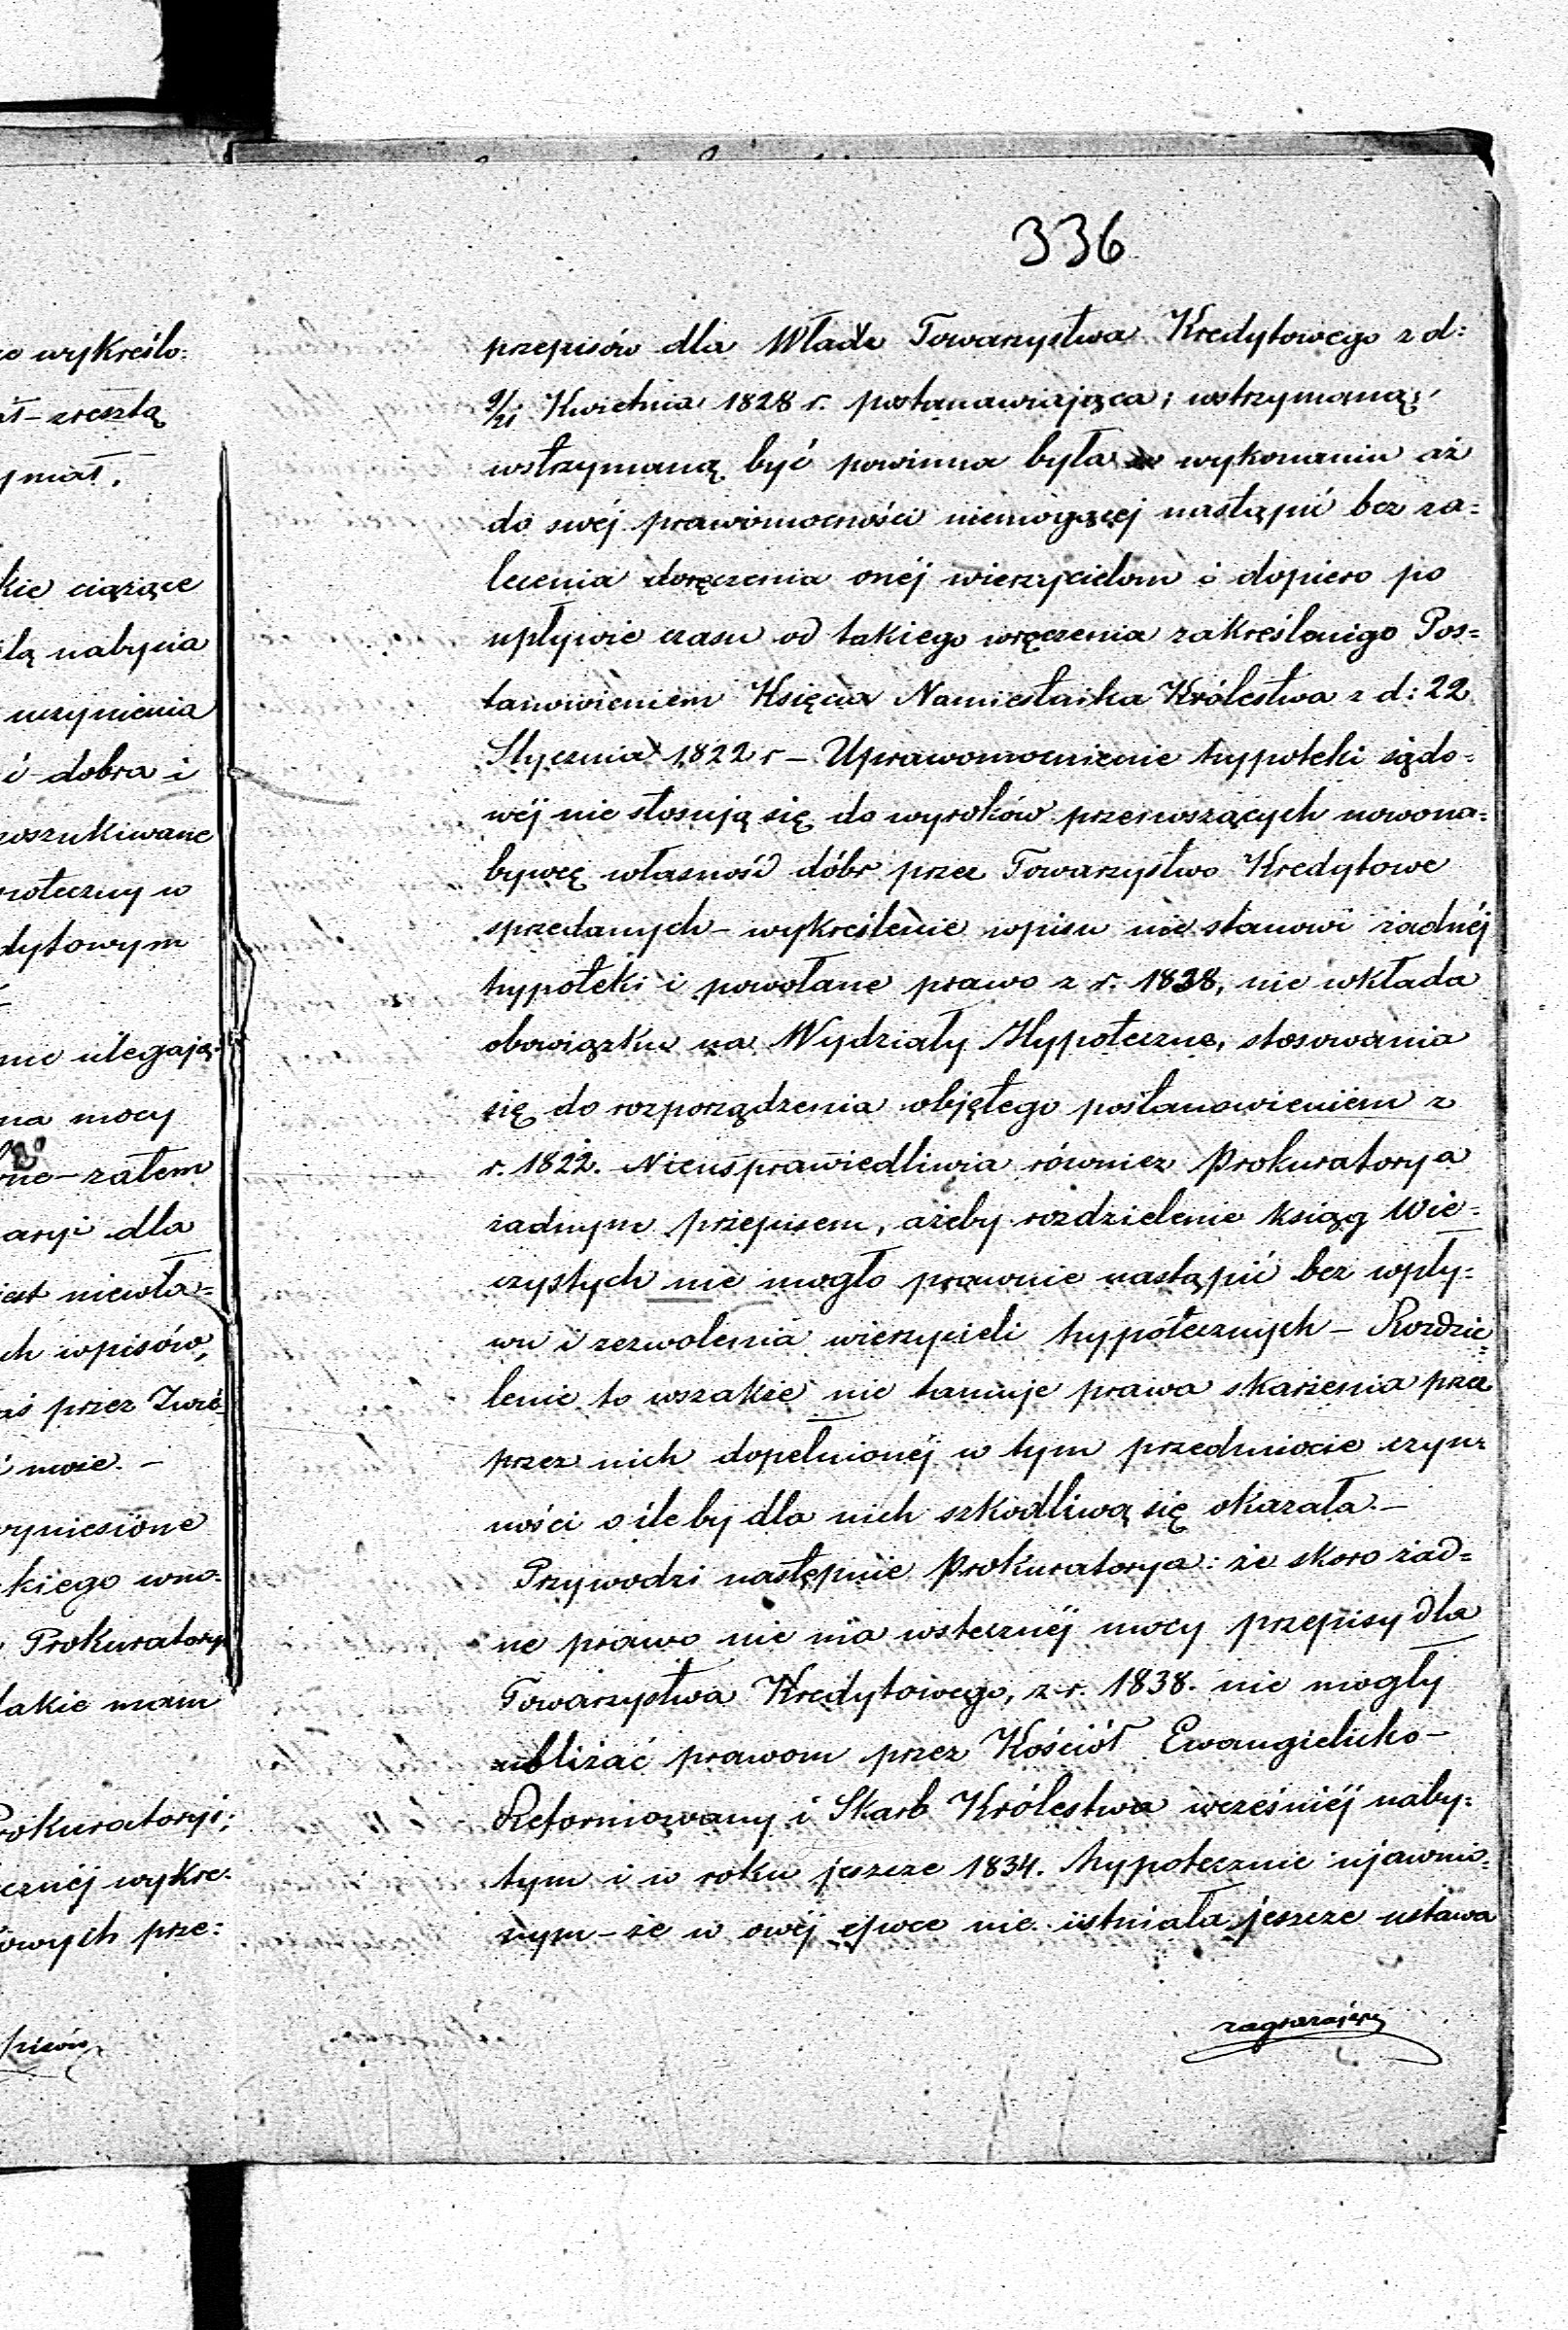 336
przepisów dla Władz Towarzystwa Kredytowego z d:
9/21 Kwietnia 1828 r. postanawiająca; wstrzymaną;
wstrzymaną być powinna była w wykonaniu aż
do swéj prawomocności niemogącéj nastąpić bez za=
lecenia doręczenia onéj wierzycielom i dopiero po
upływie czasu od takiego wręczenia zakreślonego Pos=
tanowieniem Księcia Namiestnika Królestwa z d: 22
Stycznia 1822 r – Uprawomocnienie hypoteki sądo=
wéj nie stosują się do wyroków przenoszących nowona=
bywcę własność dóbr przez Towarzystwo Kredytowe
sprzedanych – wykreślenie wpisu nie stanowi żadnéj
hypoteki i powołane prawo z r. 1838, nie wkłada
obowiązku na Wydziały Hypoteczne, stosowania
się do rozporządzenia objętego postanowieniem z
r. 1822. Nieusprawiedliwia również Prokuratorya
żadnym przepisem, ażeby rozdzielenie ksiąg Wie=
czystych nie mogło prawnie nastąpić bez wpły=
wu i zezwolenia wierzycieli hypotecznych – Rozdzie=
lenie to wszakże nie tamuje prawa skarżenia przez
przez nich dopełnionéj w tym przedmiocie czyn=
ności o ile by dla nich szkodliwą się okazała. –
Przywodzi następnie Prokuratorya: że skoro żad=
ne prawo nie ma wstecznéj mocy przepisy dla
Towarzystwa Kredytowego, z r. 1838. nie mogły
ubliżać prawom przez Kościół Ewangielicko-
Reformowany i Skarb Królestwa wcześniéj naby=
tym i w roku jeszcze 1834. hypotecznie ujawnio=
nym – że w owéj epoce nie istniała jeszcze ustawa
zagrażająca
wykreślo:
zresztą
ciążące
nabycia
uczynienia
dobra i
poszukiwane
w
ulegają=
na mocy
zatem
dla
niewła=
wpisów,
przez
wyniesione
wno:
Prokuratory
takie mam
Prokuratoryi;
wykre:
prze: